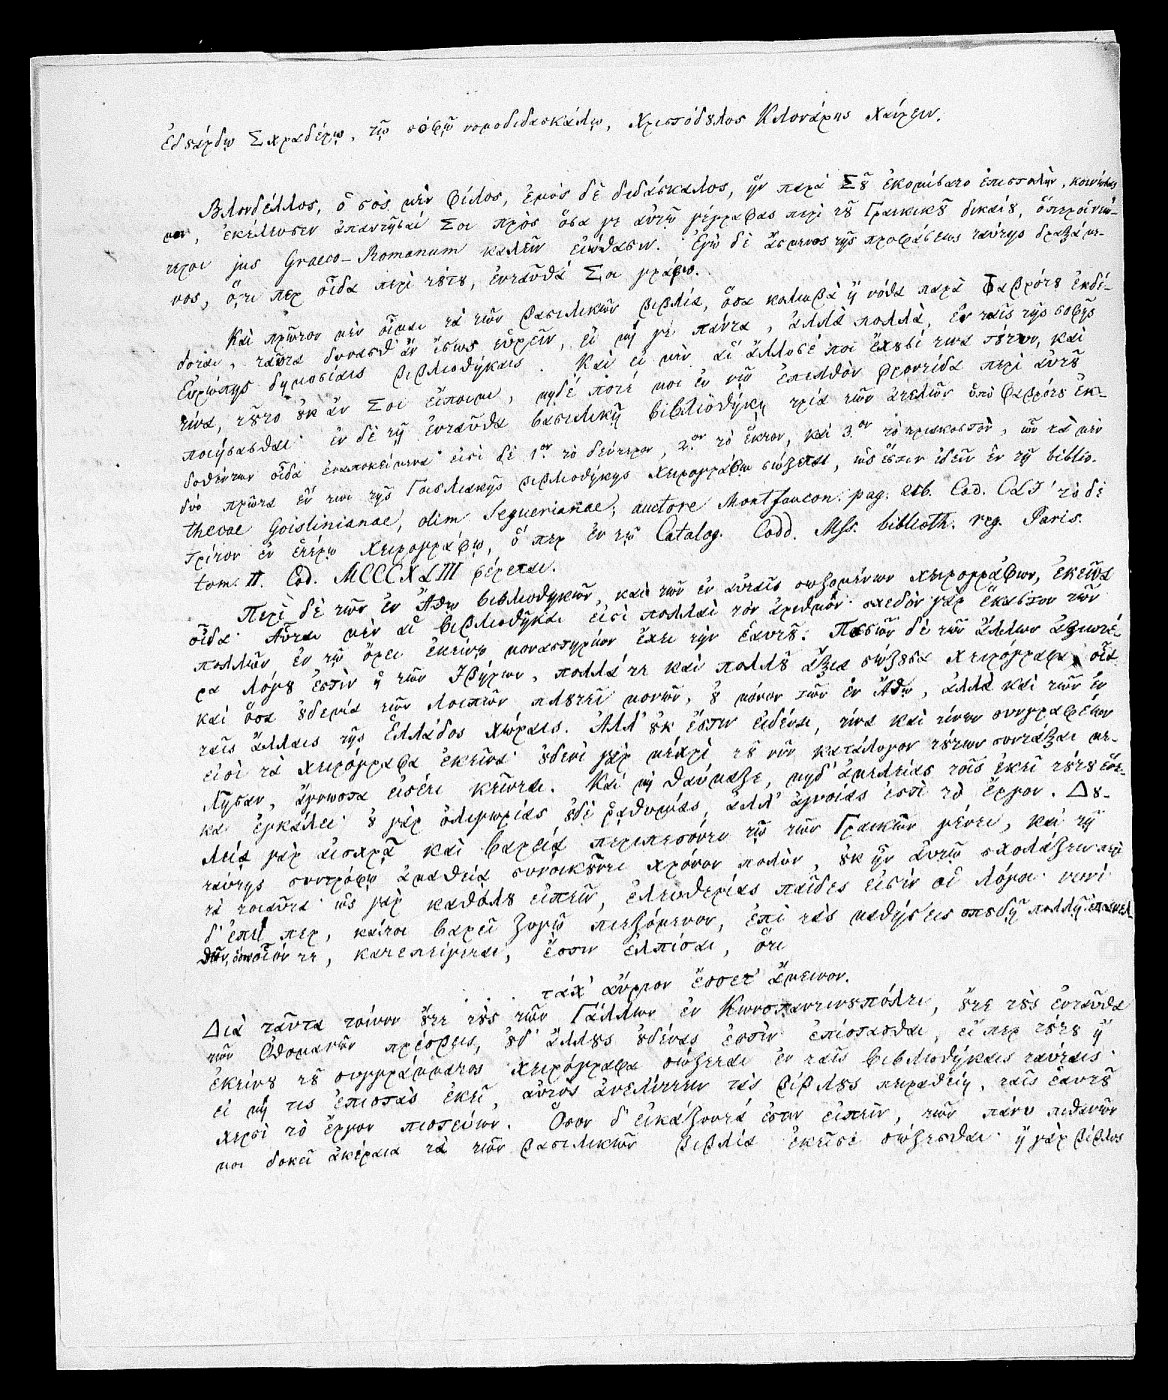 Ἐδυάρδῳ Σχραδέρῳ, τῷ σοφῷ νομοδιδασκάλῳ, Χριστόδυλος Κλονάρης Χαίρειν.
Βλονδέλλος, ὁ σὸς μὲν φίλος, ἐμὸς δὲ διδάσκαλος, ἣν παρὰ Σοῦ ἐκομίσατο ἐπιστολὴν,
ἐκέλευσεν ἀπαντῆσαί Σοι πρὸς ὅσα γε αὐτῷ γέγραφας περὶ τοῦ Γραικικοῦ δικαίου, ὅπερ οἱ νεώ-
τεροι jus Graeco-Romanum καλεῖν εἰώθασιν. Ἐγὼ δὲ ἄσμενος τῆς προφάσεως ταύτης δραξάμε-
νος, ὅ,τι περ οἶδα περὶ τούτου, ἐνταῦθά Σοι γράφω.
Καὶ πρῶτον μὲν οἶμαι τὰ τῶν βασιλικῶν βιβλία, ὅσα κολοβὰ ἢ νόθα παρὰ Φαβρότου ἐκδέ-
δοται, ταῦτα δύνασθ' ἂν ἴσως εὑρεῖν, εἰ μή γε πάντα, ἀλλὰ πολλὰ, ἐν ταῖς τῆς σοφῆς
Εὐρώπης δημοσίαις βιβλιοθήκαις. Καὶ εἰ μὲν αἱ ἄλλοσέ ποι ἔχουσί τινα τούτων, καὶ
τίνα, τοῦτο οὐκ ἂν Σοι εἴποιμι, μηδέ ποτέ μοι ἐν νῷ ἐπελθὸν φροντίδα περὶ αὐτοῦ
ποιήσασθαι· ἐν δὲ τῇ ἐνταῦθα βασιλικῇ βιβλιοθήκῃ τρία τῶν ἀτελῶν ὑπὸ Φαβρότου ἐκ-
δοθέντων οἶδα ἐναποκείμενα· εἰσὶ δὲ 1ον τὸ δεύτερον, 2ον τὸ ἕκτον, καὶ 3ον τὸ τριακοστὸν, ὧν τὰ μὲν
δύο πρῶτα ἔν τινι τῆς Γοισλιακῆς βιβλιοθήκης χειρογράφῳ σώζεται, ὡς ἔστιν ἰδεῖν ἐν τῇ biblio-
thecae Goislinianae, olim Seguerianae, auctore Montfaucon. pag. Cod. τὸ δὲ
τρίτον ἐν ἑτέρῳ χειρογράφῳ, ὅ περ ἐν τῷ Catalog. Codd. Mss. biblioth. reg. Paris.
tom. II. Cod. MCCCXLIII φέρεται.
Περὶ δὲ τῶν ἐν Ἄθῳ βιβλιοθηκῶν, καὶ τῶν ἐν αὐταῖς σωζομένων χειρογράφων, ἐκεῖνα
οἶδα· Αὗται μὲν αἱ βιβλιοθῆκαι εἰσὶ πολλαὶ τὸν ἀριθμόν· σχεδὸν γὰρ ἕκαστον τῶν
πολλῶν ἐν τῷ ὄρει ἐκείνῳ μοναστηρίων ἔχει τὴν ἑαυτοῦ. Πασῶν δὲ τῶν ἄλλων ἀξιωτέ-
ρα λόγου ἐστὶν ἡ τῶν Ἰβήρων, πολλά τε καὶ πολλοῦ ἄξια σώζουσα χειρόγραφα, οἷα
καὶ ὅσα οὐδεμία τῶν λοιπῶν πλουτεῖ μονῶν, οὐ μόνον τῶν ἐν Ἄθῳ, ἀλλὰ καὶ τῶν ἐν
ταῖς ἄλλαις τῆς Ἑλλάδος χώραις. Ἀλλ' οὐκ ἔστιν εἰδέναι, τίνα καὶ τίνων συγγραφέων
εἰσὶ τὰ χειρόγραφα ἐκεῖνα· οὐδενὶ γὰρ μέχρι τοῦ νῦν κατάλογον τούτων συντάξαι με-
λῆσαν, ἄγνωστα εἰσέτι κεῖται. Καὶ μὴ θαύμαζε, μηδ' ἀμελείας τοῖς ἐκεῖ τούτου ἕνε-
κα ἐγκάλει· οὐ γὰρ ὀλιγωρίας οὐδὲ ῥαθυμίας, ἀλλ' ἀγνοίας ἐστὶ τὸ ἔργον. Δου-
λείᾳ γὰρ αἰσχρᾷ καὶ βαρείᾳ περιπεσόντι τῷ τῶν Γραικῶν γένει, καὶ τῇ
ταύτης συντρόφῳ ἀμαθείᾳ συνοικοῦντι χρόνον πολὺν, οὐκ ἦν αὐτῷ σχολάζειν περὶ
τὰ τοιαῦτα· ὡς γὰρ καθόλου εἰπεῖν, ἐλευθερίας παῖδες εἰσὶν οἱ λόγοι· νυνὶ
δ' ἐπεί περ, καίτοι βαρεῖ ζυγῷ πιεζόμενον, ἐπὶ τὰς μαθήσεις σπουδῇ πολλῇ
τε, κατεπείγεται, ἔστιν ἐλπίσαι, ὅτι
τάχ' αὔριον ἔσσετ' ἄμεινον.
Διὰ ταῦτα τοίνυν οὔτε τοὺς τῶν Γάλλων ἐν Κωνσταντινουπόλει, οὔτε τοὺς ἐνταῦθα
τῶν Ὀθομανῶν πρέσβεις, οὐδ' ἄλλους οὐδένας ἐστὶν ἐπίστασθαι, εἴ περ τούτου ἢ
ἐκείνου τοῦ συγγράμματος χειρόγραφα σώζεται ἐν ταῖς βιβλιοθήκαις ταύταις·
εἰ μή τις ἐπιστὰς ἐκεῖ, αὐτὸς ἀνελίττειν τὰς βίβλους πειραθείη, ταῖς ἑαυτοῦ
χερσὶ τὸ ἔργον πιστεύων. Ὅσον δ' εἰκάζοντά ἐστιν εἰπεῖν, τῶν πάνυ πιθανῶν
μοι δοκεῖ ἀκέραια τὰ τῶν βασιλικῶν βιβλία ἐκεῖσε σώζεσθαι· ἡ γὰρ βίβλος